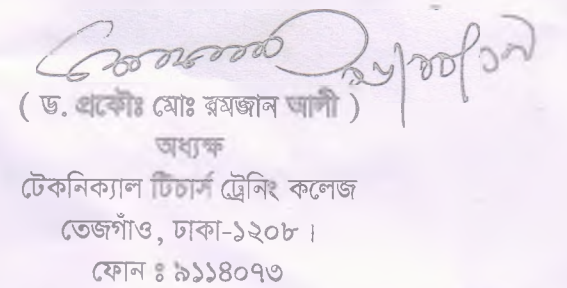 ( ড. প্রকৌঃ মোঃ রমজান আলী )
অধ্যক্ষ
টেকনিক্যাল টিচার্স ট্রেনিং কলেজ
তেজগাঁও, ঢাকা-১২০৮ ।
ফোন ঃ ৯১১৪০৭৩